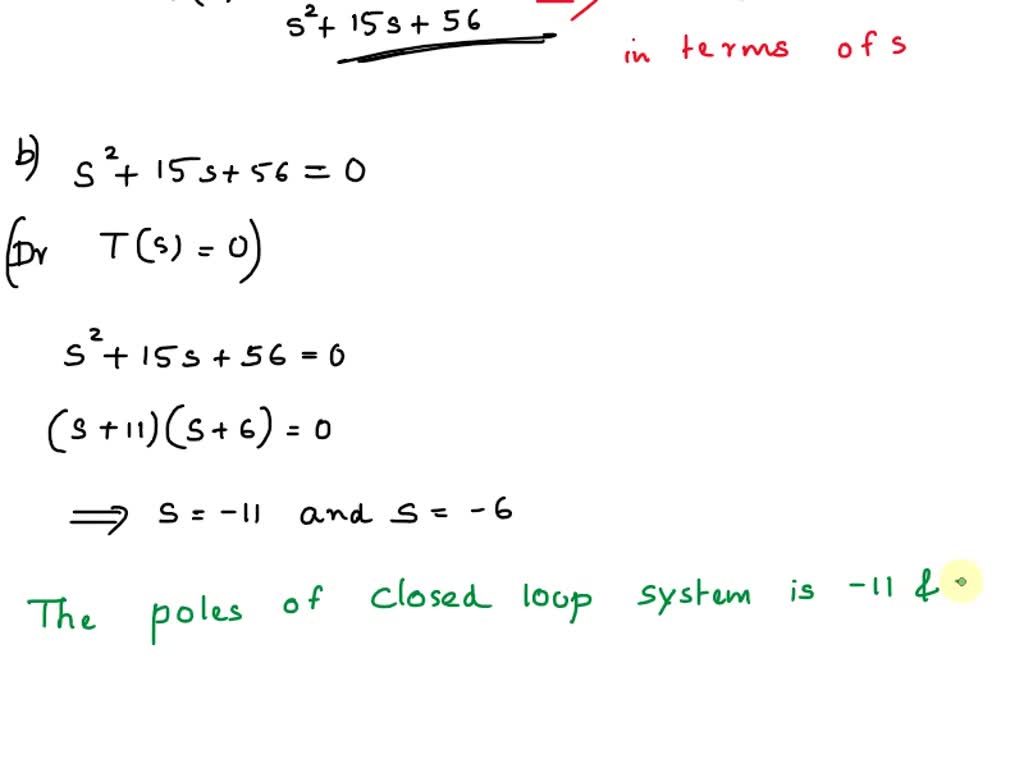 s²+ 15s+ 56
in terms of s
b) s²+ 15s+56 = 0
(Dr T(s) = 0)
s²+ 15s + 56 = 0
(s + 11)(s + 6) = 0
⟹ s = -11 and s = -6
The poles of closed loop system is -11 &